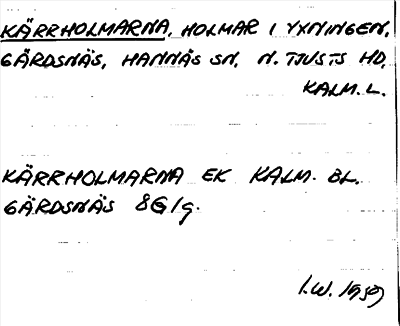 KÄRRHOLMARNA, HOLMAR I YXNINGEN,
GÄRDSNÄS, HANNÄS SN, N. TJUSTS HD,
KALM. L.
KÄRRHOLMARNA EK KALM. BL.
GÄRDSNÄS 8G 1g.
I.W. 1959